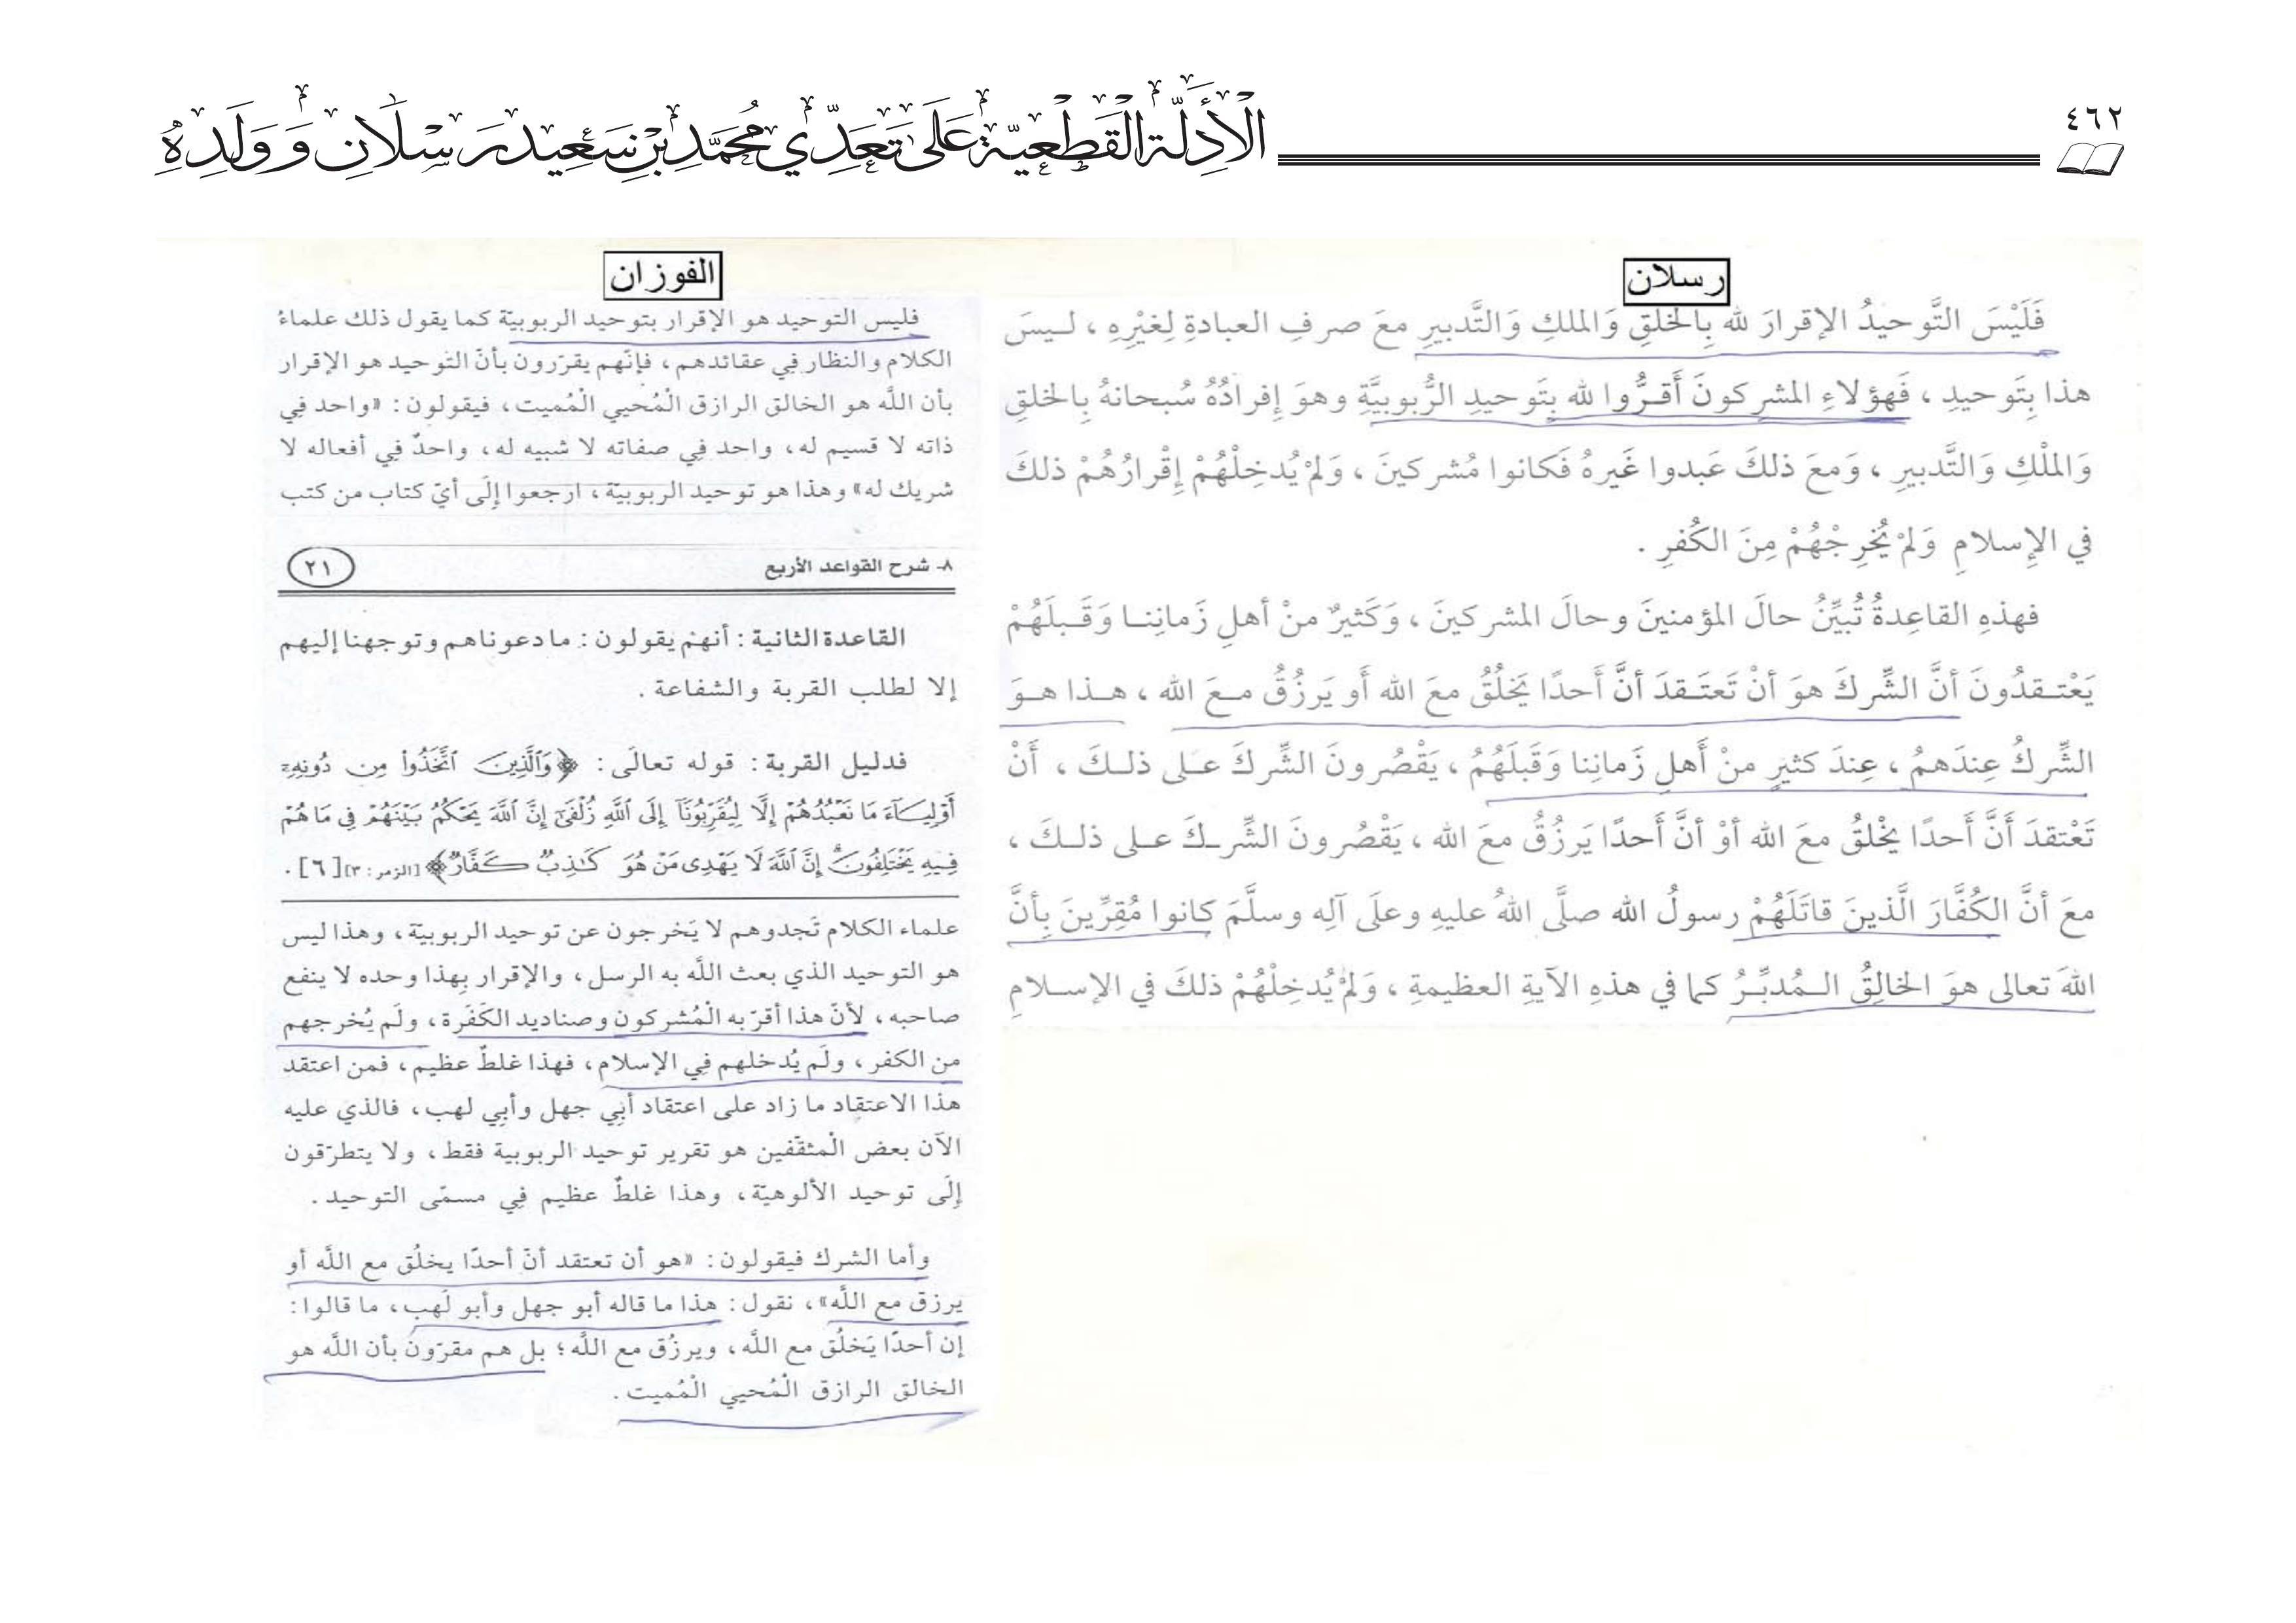 ٤٦٢
الأَدِلَّةُ القَطْعِيَّةُ عَلَى تَعَدِّي مُحَمَّدِ بْنِ سَعِيد رَسْلَانِ وَوَلَدِهِ
رسلان
فَلَيْسَ التَّوحيدُ الإقرارَ لله بِالخَلقِ وَالملكِ وَالتَّدبيرِ معَ صرفِ العبادةِ لِغَيْرِهِ ، لـيسَ
هذا بِتَوحيدِ ، فَهؤلاءِ المشركونَ أَقـرُّوا لله بِتَوحيدِ الرُّبوبيَّةِ وهوَ إِفرادُهُ سُبحانهُ بِالخلقِ
وَالملْكِ وَالتَّدبيرِ ، وَمعَ ذلكَ عَبدوا غَيرهُ فَكانوا مُشركينَ ، وَلمْ يُدخِلْهُمْ إِقْرارُهُمْ ذلكَ
في الإِسلامِ وَلمْ يُخرِجْهُمْ مِنَ الكُفرِ .
فهذهِ القاعِدةُ تُبيِّنُ حالَ المؤمنينَ وحالَ المشركينَ ، وَكَثيرٌ منْ أهلِ زَمانِنـا وَقَـبلَهُمْ
يَعْتـقدُونَ أنَّ الشِّركَ هوَ أنْ تَعتَـقدَ أنَّ أَحدًا يَخلُقُ معَ الله أَو يَرزُقُ مـعَ الله ، هـذا هـوَ
الشِّركُ عِندَهمُ ، عِندَ كثيرٍ منْ أَهلِ زَمانِنا وَقَبلَهُمُ ، يَقْصُرونَ الشِّركَ عـلى ذلـكَ ، أَنْ
تَعْتقدَ أَنَّ أَحدًا يخْلقُ معَ الله أوْ أنَّ أَحدًا يَرزُقُ معَ الله ، يَقْصُرونَ الشِّـركَ عـلى ذلـكَ ،
معَ أنَّ الكُفَّارَ الَّذينَ قاتَلَهُمْ رسولُ الله صلَّى اللهُ عليهِ وعلَى آلِه وسلَّمَ كانوا مُقِرِّينَ بِأنَّ
اللهَ تعالى هوَ الخالِقُ الـمُدبِّـرُ كما في هذهِ الآيةِ العظيمةِ ، وَلمْ يُدخِلْهُمْ ذلكَ في الإسـلامِ
الفوزان
فليس التوحيد هو الإقرار بتوحيد الربوبيّة كما يقول ذلك علماءُ
الكلام والنظار فِي عقائدهم، فإنَّهم يقرّرون بأنّ التوحيد هو الإقرار
بأن اللَّه هو الخالق الرازق الْمُحيي الْمُميت، فيقولون: «واحد فِي
ذاته لا قسيم له، واحد فِي صفاته لا شبيه له، واحدٌ فِي أفعاله لا
شريك له» وهذا هو توحيد الربوبيّة، ارجعوا إلَى أيّ كتاب من كتب
٨- شرح القواعد الأربع
٢١
القاعدة الثانية: أنهم يقولون: ما دعوناهم وتوجهنا إليهم
إلا لطلب القربة والشفاعة.
فدليل القربة: قوله تعالَى: ﴿وَٱلَّذِينَ ٱتَّخَذُوا۟ مِن دُونِهِۦٓ
أَوْلِيَآءَ مَا نَعْبُدُهُمْ إِلَّا لِيُقَرِّبُونَآ إِلَى ٱللَّهِ زُلْفَىٰٓ إِنَّ ٱللَّهَ يَحْكُمُ بَيْنَهُمْ فِى مَا هُمْ
فِيهِ يَخْتَلِفُونَ ۗ إِنَّ ٱللَّهَ لَا يَهْدِى مَنْ هُوَ كَـٰذِبٌ كَفَّارٌ﴾ [الزمر: ٣] [٦].
علماء الكلام تَجدوهم لا يَخرجون عن توحيد الربوبيّة، وهذا ليس
هو التوحيد الذي بعث اللَّه به الرسل، والإقرار بِهذا وحده لا ينفع
صاحبه، لأنّ هذا أقرّ به الْمُشركون وصناديد الكَفَرة، ولَم يُخرجهم
من الكفر، ولَم يُدخلهم فِي الإسلام، فهذا غلطٌ عظيم، فمن اعتقد
هذا الاعتقاد ما زاد على اعتقاد أبِي جهل وأبِي لهب، فالذي عليه
الآن بعض الْمثقّفين هو تقرير توحيد الربوبية فقط، ولا يتطرّقون
إلَى توحيد الألوهيّة، وهذا غلطٌ عظيم فِي مسمّى التوحيد.
وأما الشرك فيقولون: «هو أن تعتقد أنّ أحدًا يخلُق مع اللَّه أو
يرزق مع اللَّه»، نقول: هذا ما قاله أبو جهل وأبو لَهب، ما قالوا:
إن أحدًا يَخلُق مع اللَّه، ويرزُق مع اللَّه؛ بل هم مقرّون بأن اللَّه هو
الخالق الرازق الْمُحيي الْمُميت.